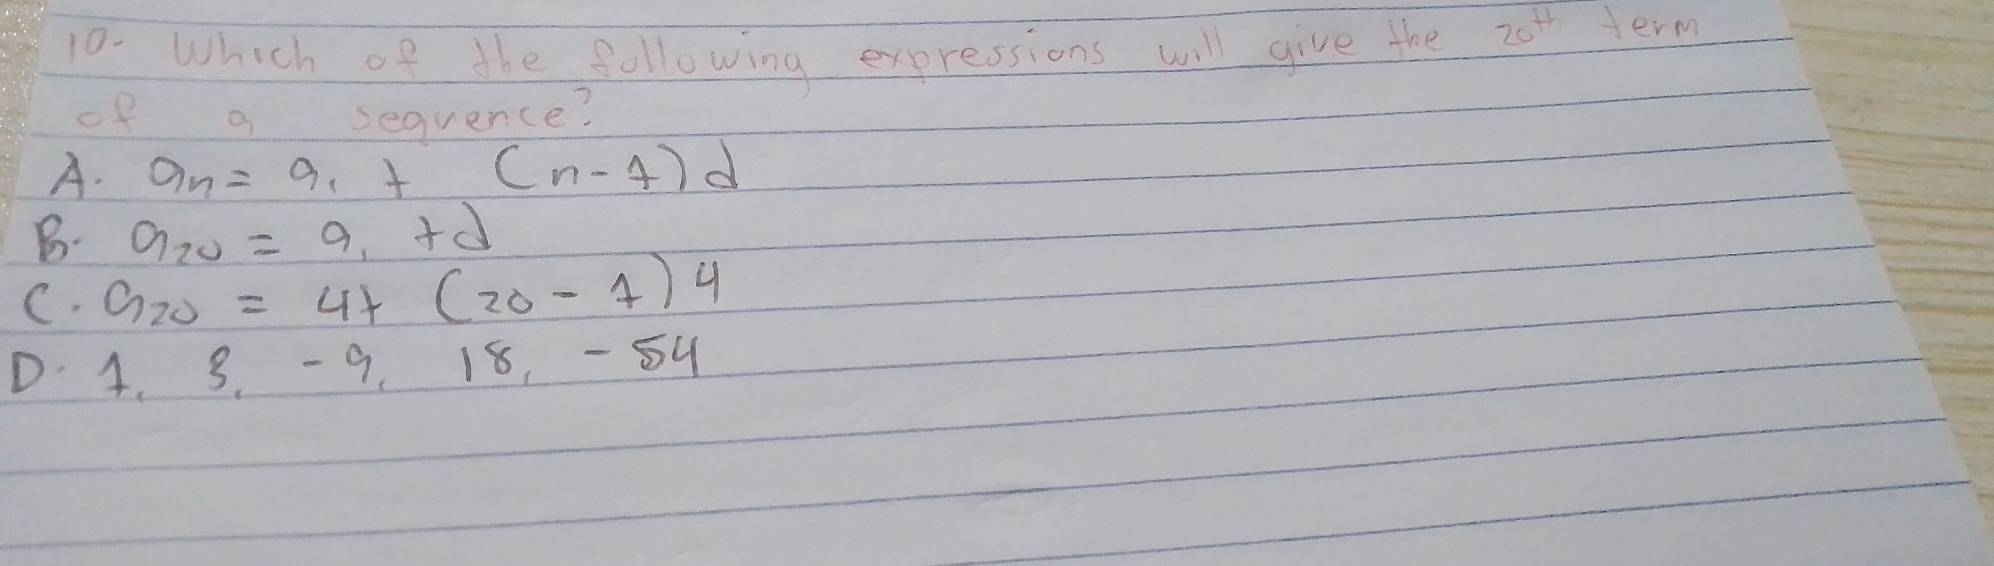 10. Which of the following expressions will give the 20th term
of a sequence?
A. an = a1 + (n-1)d
B. a20 = a1 + d
C. a20 = 4+ (20-1)4
D. 1, 3, -9, 18, -54